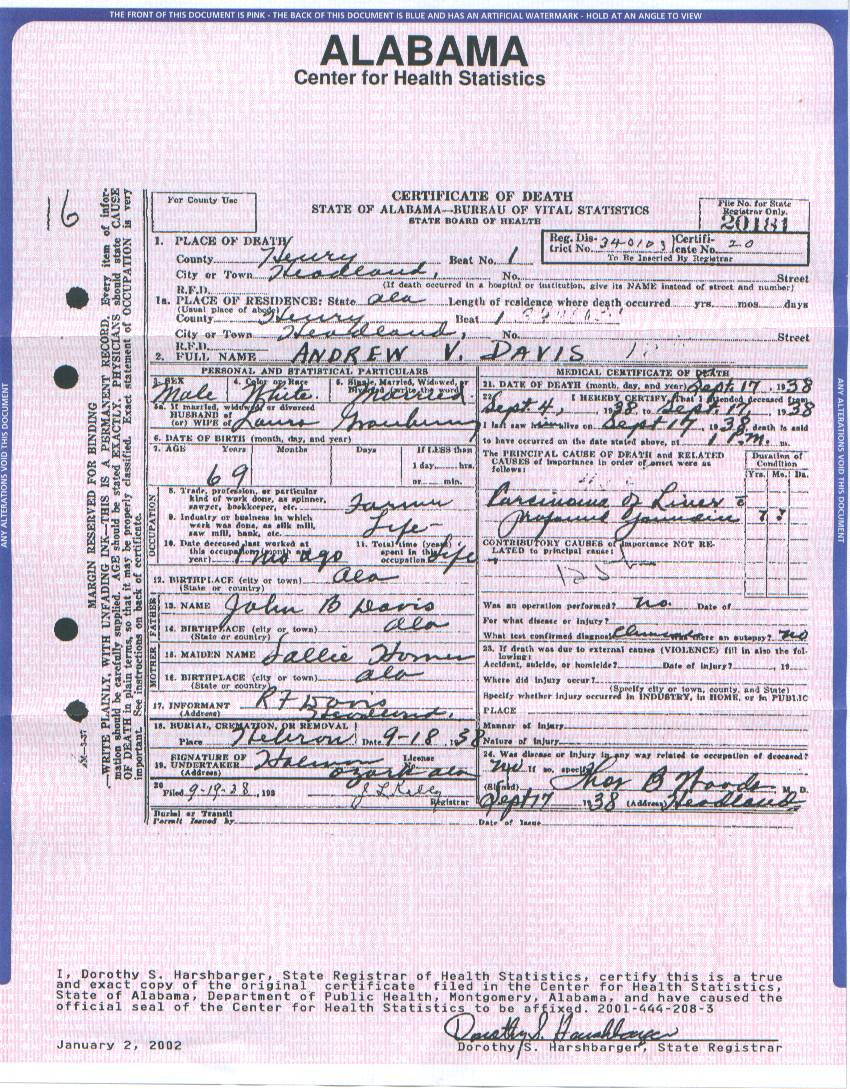 THE FRONT OF THIS DOCUMENT IS PINK - THE BACK OF THIS DOCUMENT IS BLUE AND HAS AN ARTIFICIAL WATERMARK - HOLD AT AN ANGLE TO VIEW
ALABAMA
Center for Health Statistics
16
For County Use
CERTIFICATE OF DEATH
STATE OF ALABAMA—BUREAU OF VITAL STATISTICS
STATE BOARD OF HEALTH
File No. for State Registrar Only.
20181
Reg. District No. 340103 Certificate No. 20
To Be Inserted By Registrar
1. PLACE OF DEATH
County Henry Beat No. 1
City or Town Headland, No. Street
R.F.D. (If death occurred in a hospital or institution, give its NAME instead of street and number)
1a. PLACE OF RESIDENCE: State Ala Length of residence where death occurred yrs. mos. days
(Usual place of abode)
County Henry Beat 1
City or Town Headland, No. Street
R.F.D.
2. FULL NAME ANDREW V. DAVIS
PERSONAL AND STATISTICAL PARTICULARS
3. SEX 4. Color or Race 5. Single, Married, Widowed, or Divorced (write the word)
Male White Married
5a. If married, widowed or divorced
HUSBAND of
(or) WIFE of Laura
6. DATE OF BIRTH (month, day, and year)
7. AGE Years Months Days If LESS than
1 day hrs.
69 or min.
OCCUPATION
8. Trade, profession, or particular
kind of work done, as spinner,
sawyer, bookkeeper, etc. Farmer
9. Industry or business in which
work was done, as silk mill,
saw mill, bank, etc. Life
10. Date deceased last worked at
this occupation (month and
year) 1 mo ago
11. Total time (years)
spent in this
occupation Life
12. BIRTHPLACE (city or town) Ala
(State or country)
FATHER
13. NAME John B Davis
14. BIRTHPLACE (city or town) Ala
(State or country)
MOTHER
15. MAIDEN NAME Sallie Horner
16. BIRTHPLACE (city or town) Ala
(State or country)
17. INFORMANT R F Davis
(Address) Headland.
18. BURIAL, CREMATION, OR REMOVAL
Place Hebron Date 9-18, 1938
19. SIGNATURE OF UNDERTAKER Holman License
(Address) Ozark Ala
20 Filed 9-19-38, 193 J L Kelly
Registrar
Burial or Transit
Permit Issued by
MEDICAL CERTIFICATE OF DEATH
21. DATE OF DEATH (month, day, and year) Sept. 17, 1938
22. I HEREBY CERTIFY, That I attended deceased from
Sept. 4, 1938 to Sept. 17, 1938
I last saw alive on Sept 17, 1938, death is said
to have occurred on the date stated above, at 1 P.M. m.
The PRINCIPAL CAUSE OF DEATH and RELATED
CAUSES of importance in order of onset were as
follows:
Duration of Condition
Yrs. Mo. Ds.
Carcinoma of Liver c
profound Jaundice ? ?
CONTRIBUTORY CAUSES of importance NOT RELATED to principal cause:
Was an operation performed? no. Date of
For what disease or injury?
What test confirmed diagnosis? Clinical Was there an autopsy? no
23. If death was due to external causes (VIOLENCE) fill in also the following:
Accident, suicide, or homicide? Date of injury? 19
Where did injury occur?
(Specify city or town, county, and State)
Specify whether injury occurred in INDUSTRY, in HOME, or in PUBLIC
PLACE
Manner of Injury
Nature of Injury
24. Was disease or injury in any way related to occupation of deceased?
no If so, specify
(Signed) Thos B Woods M. D.
Sept 17 1938 (Address) Headland
Date of Issue
MARGIN RESERVED FOR BINDING
—WRITE PLAINLY, WITH UNFADING INK—THIS IS A PERMANENT RECORD. Every item of information should be carefully supplied. AGE should be stated EXACTLY. PHYSICIANS should state CAUSE OF DEATH in plain terms, so that it may be properly classified. Exact statement of OCCUPATION is very important. See instructions on back of certificate.
ANY ALTERATIONS VOID THIS DOCUMENT
ANY ALTERATIONS VOID THIS DOCUMENT
I, Dorothy S. Harshbarger, State Registrar of Health Statistics, certify this is a true
and exact copy of the original certificate filed in the Center for Health Statistics,
State of Alabama, Department of Public Health, Montgomery, Alabama, and have caused the
official seal of the Center for Health Statistics to be affixed. 2001-444-208-3
Dorothy S. Harshbarger
January 2, 2002
Dorothy S. Harshbarger, State Registrar